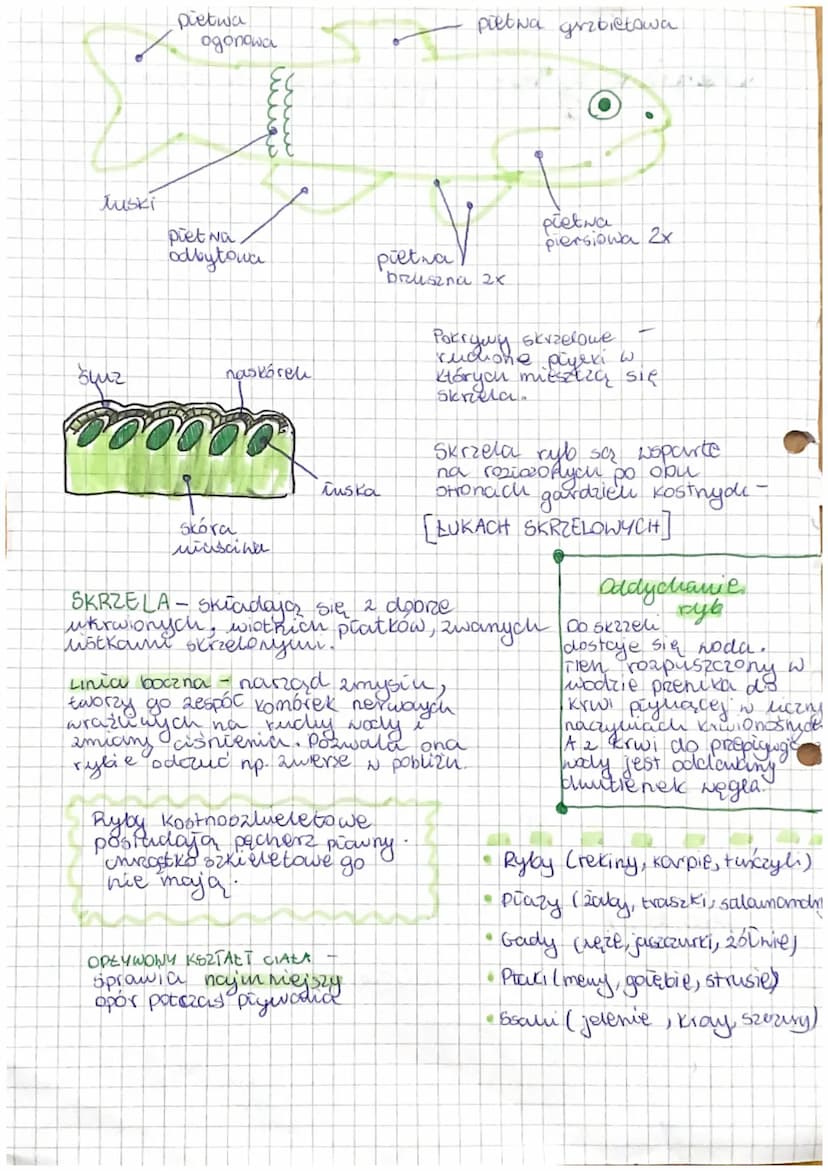 płetwa
ogonowa
płetwa grzbietowa
łuski
płetwa
odbytowa
płetwa
brzuszna 2x
płetwa
piersiowa 2x
śluz
naskórek
łuska
skóra
właściwa
Pokrywy skrzelowe –
ruchome płytki w
których mieszczą się
skrzela.
Skrzela ryb są wsparte
na rozłożonych po obu
stronach gardzieli kostnych –
[ŁUKACH SKRZELOWYCH]
SKRZELA – składają się z dobrze
ukrwionych, wiotkich płatków, zwanych
listkami skrzelowymi.
Linia boczna – narząd zmysłu,
tworzy go zespół komórek nerwowych
wrażliwych na ruchy wody i
zmiany ciśnienia. Pozwala ona
rybie odczuć np. zwierze w pobliżu.
Ryby kostnoszkieletowe
posiadają pęcherz pławny.
chrząstko szkieletowe go
nie mają.
OPŁYWOWY KSZTAŁT CIAŁA –
sprawia najmniejszy
opór potczas pływania
Oddychanie
ryb
Do skrzeli
dostaje się woda.
Tlen rozpuszczony w
wodzie przenika do
krwi płynącej w liczny
naczyniach krwionośnych
A z krwi do
wody jest oddawany
dwutlenek węgla.
• Ryby (rekiny, karpie, tuńczyki)
• Płazy (żaby, traszki, salamandry
• Gady (węże, jaszczurki, żółwie)
• Ptaki (mewy, gołębie, strusie)
• Ssaki (jelenie, krowy, szczury)